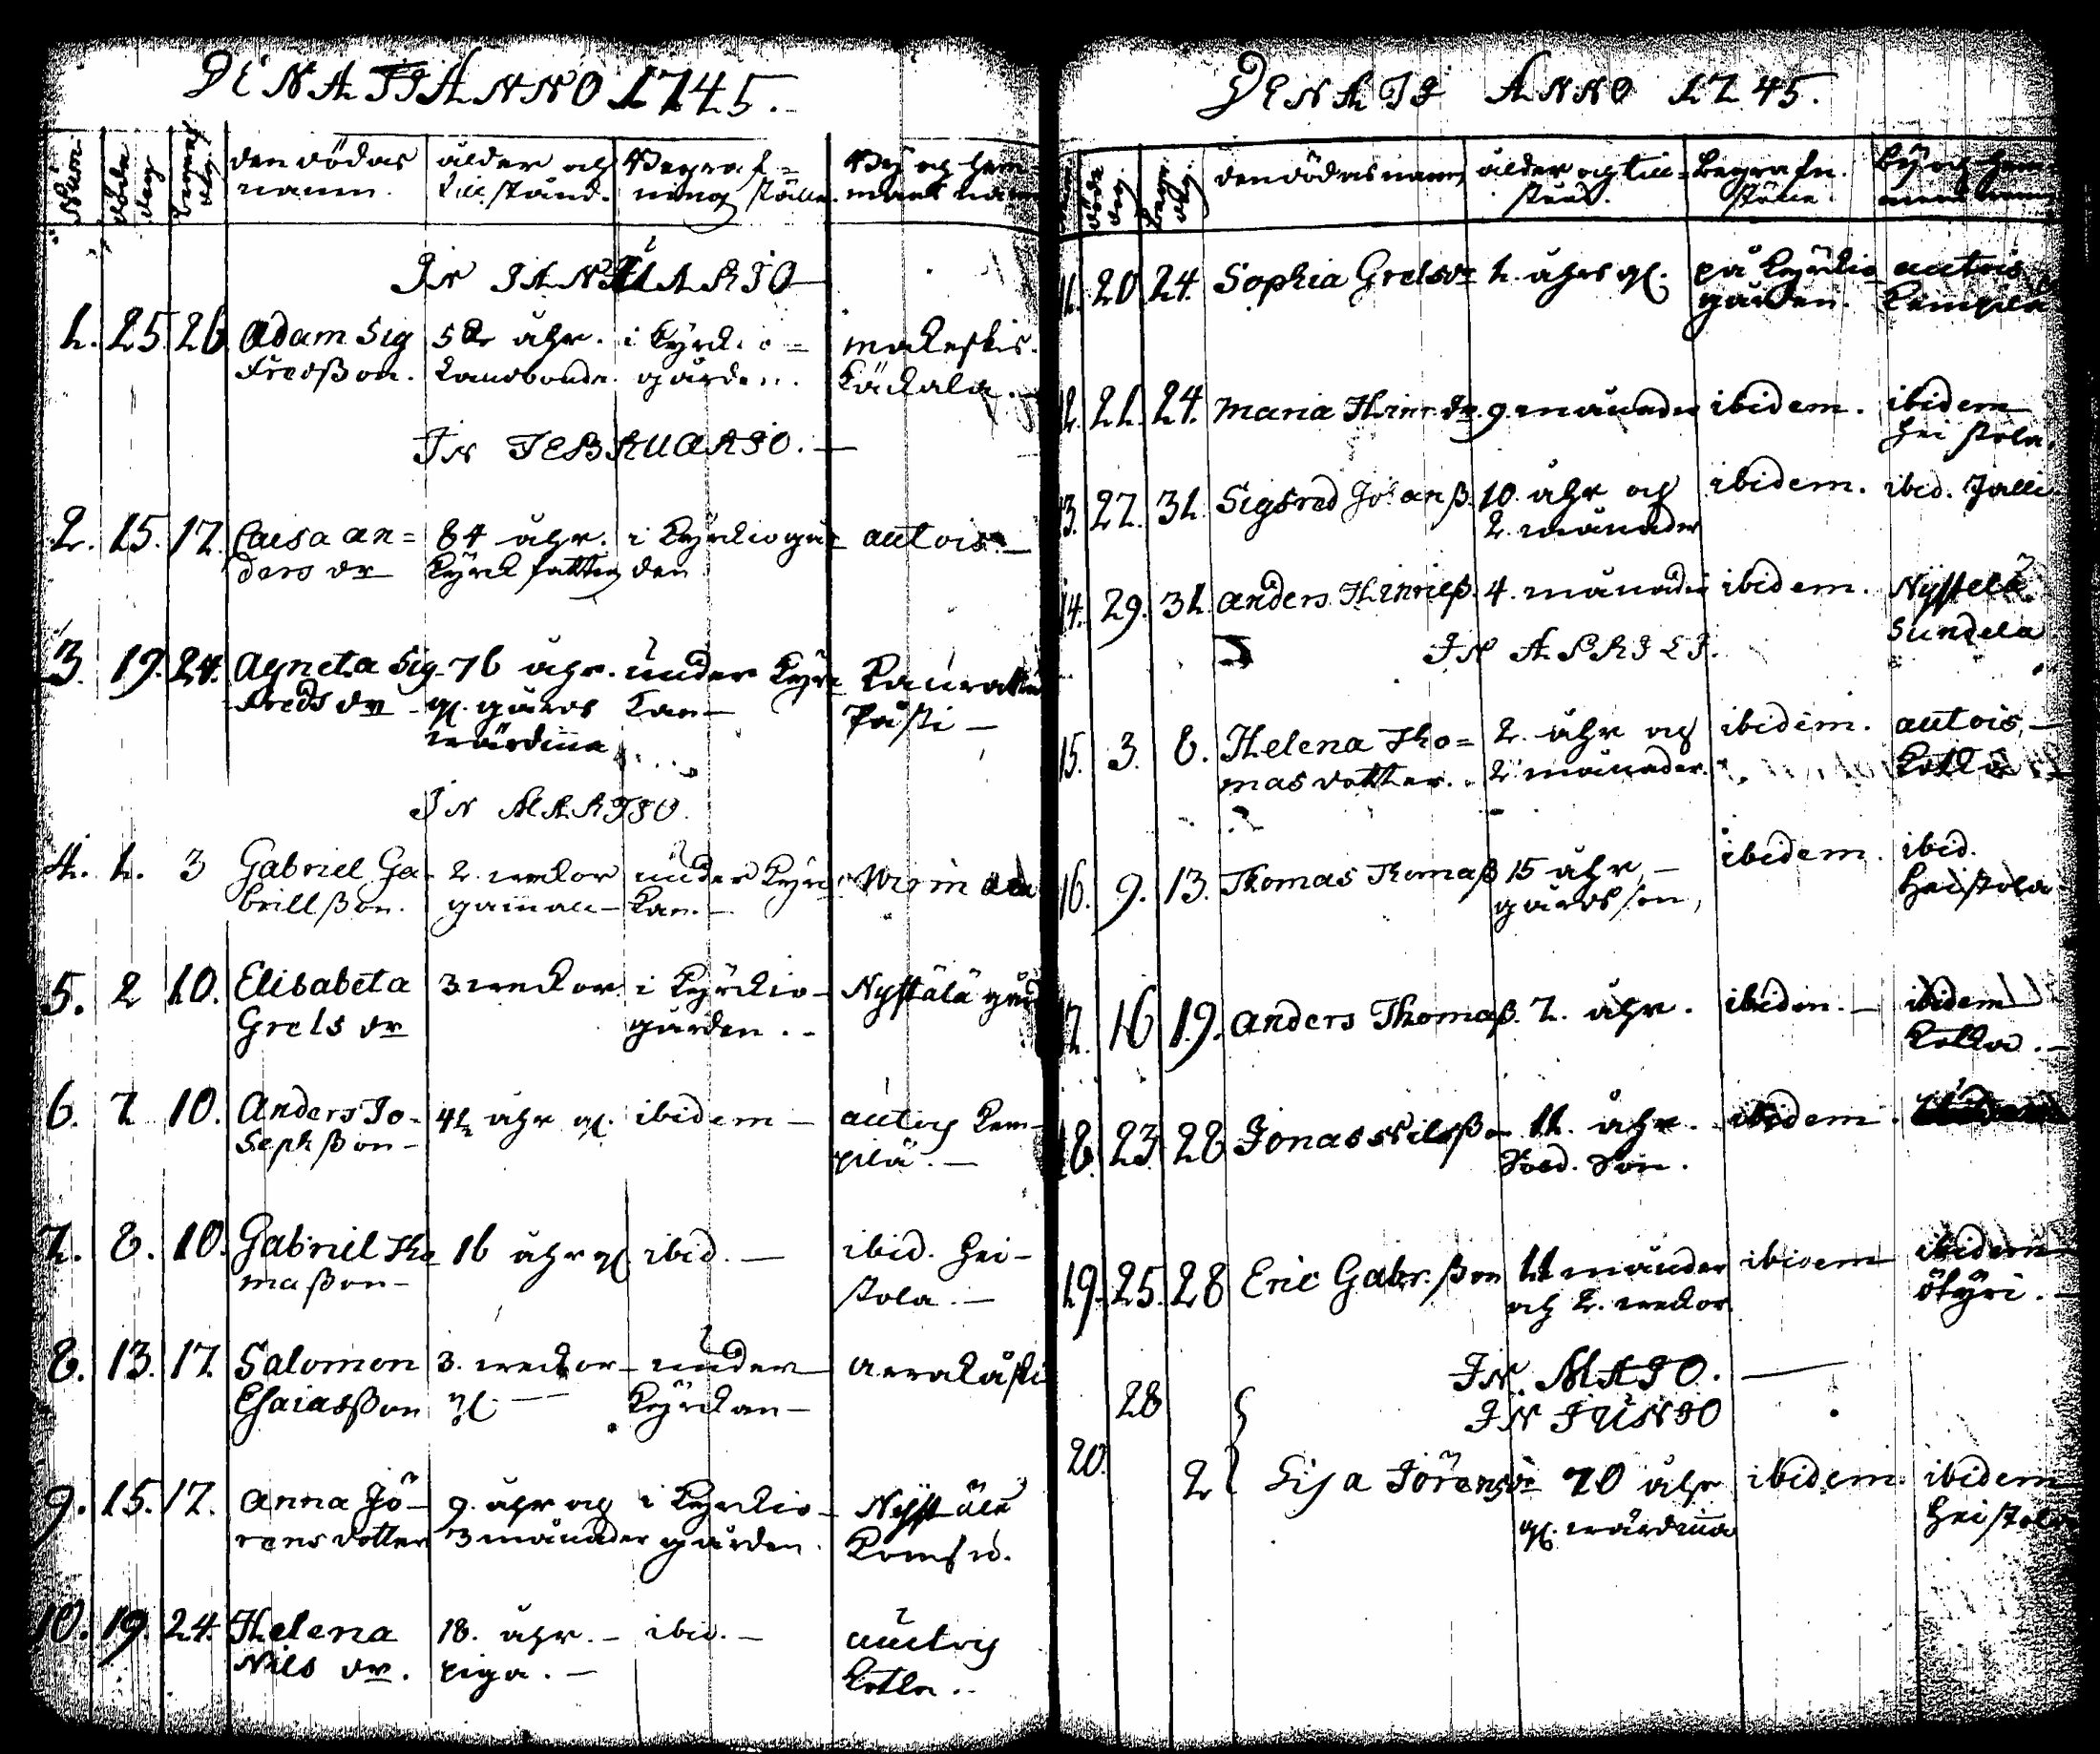 DENATI ANNO 1745.
Num.
döde dag
begraf: dag.
den dödas
namn.
ålder och
till stånd.
Begraf=
ning ställe.
By och hem=
mans namn
IN IANUARIO
1. 25. 26 Adam Sig
fredßon.
åhr.
Landbonde.
i kyrckio=
gården.
IN FEBRUARIO.
2. 15. 17. Caisa An=
ders dr
84 åhr.
kyrck fattig
i kyrckiogår
den
autois.
3. 19. 24. Agneta Sig
freds dr
76 åhr.
gl. gårds
wärdinna
under kyrc
kan
IN MARTIO.
4. 1. 3 Gabriel Ga
briellßon.
2. weckor
gammal
under kyrc
kan.
5. 2 10. Elisabeta
Grels dr
3 weckor
i kyrckio
gården.
Nystälä
6. 7 10. Anders Jo=
sephßon
åhr gl.
ibidem
autois Kem
pilä.
7. 8. 10. Gabriel Tho
maßon
16 åhr gl
ibid.
ibid. Hei
stola.
8. 13. 17. Salomon
Esaiasßon
3. weckor
gl
under
kyrckan
9. 15. 17. Anna Jö
rens dotter
9. åhr och
3 månader
i kyrckio
gården.
10. 19. 24. Helena
Nils dr.
18. åhr.
piga.
ibid.
autois
Kotka.
DENATI ANNO 1745.
den dödas namn
ålder og till=
stånd.
begrafn.
ställe.
By och hem
11. 20 24. Sophia Grelsdr 1. åhrs gl.
på kyrckio
gården.
autois
Kempilä
12. 21. 24. Maria Hinr. dr. 9. månader ibidem.
ibidem
Heistola.
13. 27. 31. Sigfred Johanß. 10. åhr och
2. månader
ibidem. ibid. Jalli
14. 29. 31. Anders Hinricß. 4. månader ibidem.
IN APRILI.
15. 3. 8. Helena Tho=
mas dotter.
2. åhr och
2 månader.
ibidem.
autois,
Kotka
16. 9. 13. Thomas Thomaß 15 åhr,
gårds son,
ibidem.
ibid.
Heistola
17. 16 19. Anders Thomaß. 7. åhr. ibidem.
ibidem
Kotka.
18. 23. 28 Jonas Nilsßon 11. åhr.
Sold. Son.
ibidem.
19. 25. 28 Eric Gabr.ßon 11 månader
och 2. weckor
ibidem
ibidem
IN. MAJO.
28
IN JUNIO
20. 2 Lisa Jörensdr 70 åhr
gl. wärdinna
ibidem.
ibidem
Heistola